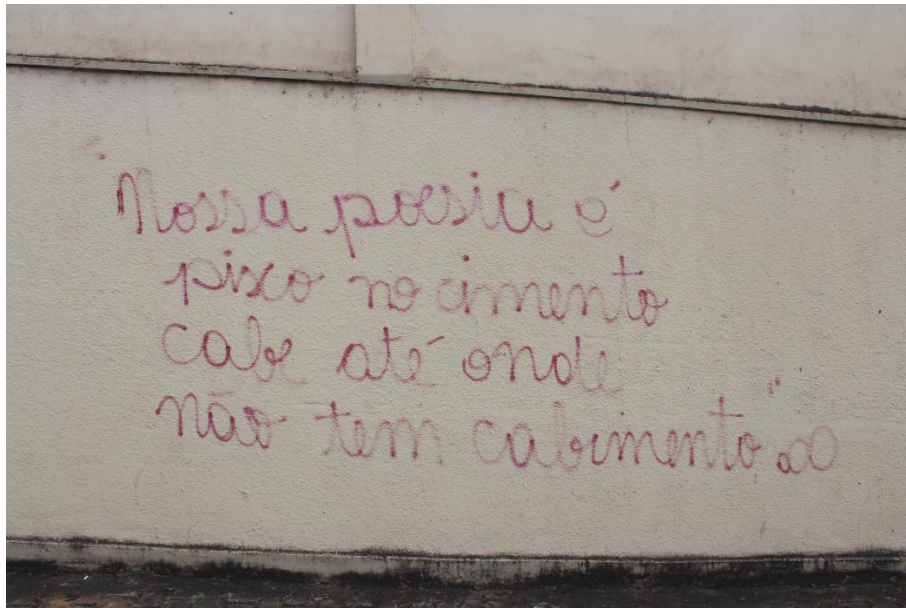 "Nossa poesia é
pixo no cimento
cabe até onde
não tem cabimento"